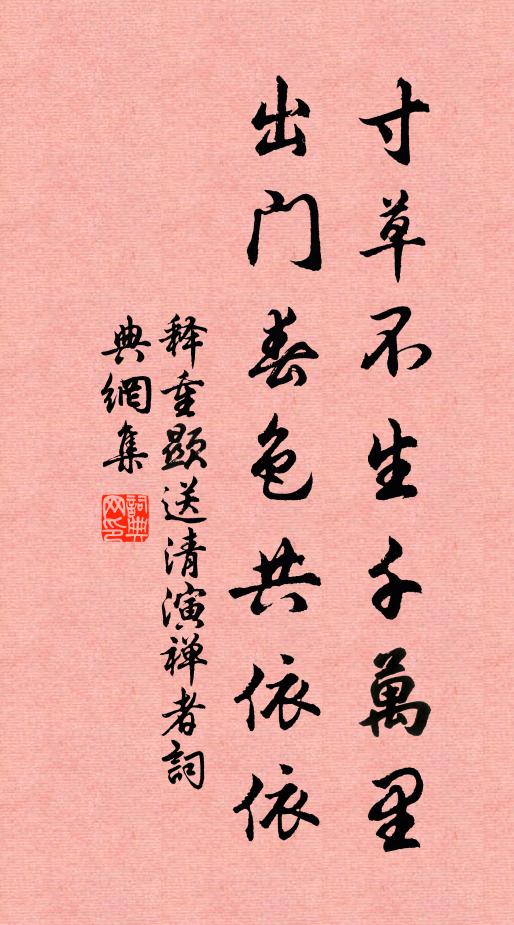 寸草不生千萬里
出門春色共依依
释重顯送清演禅者詞
典網集
詞典网印